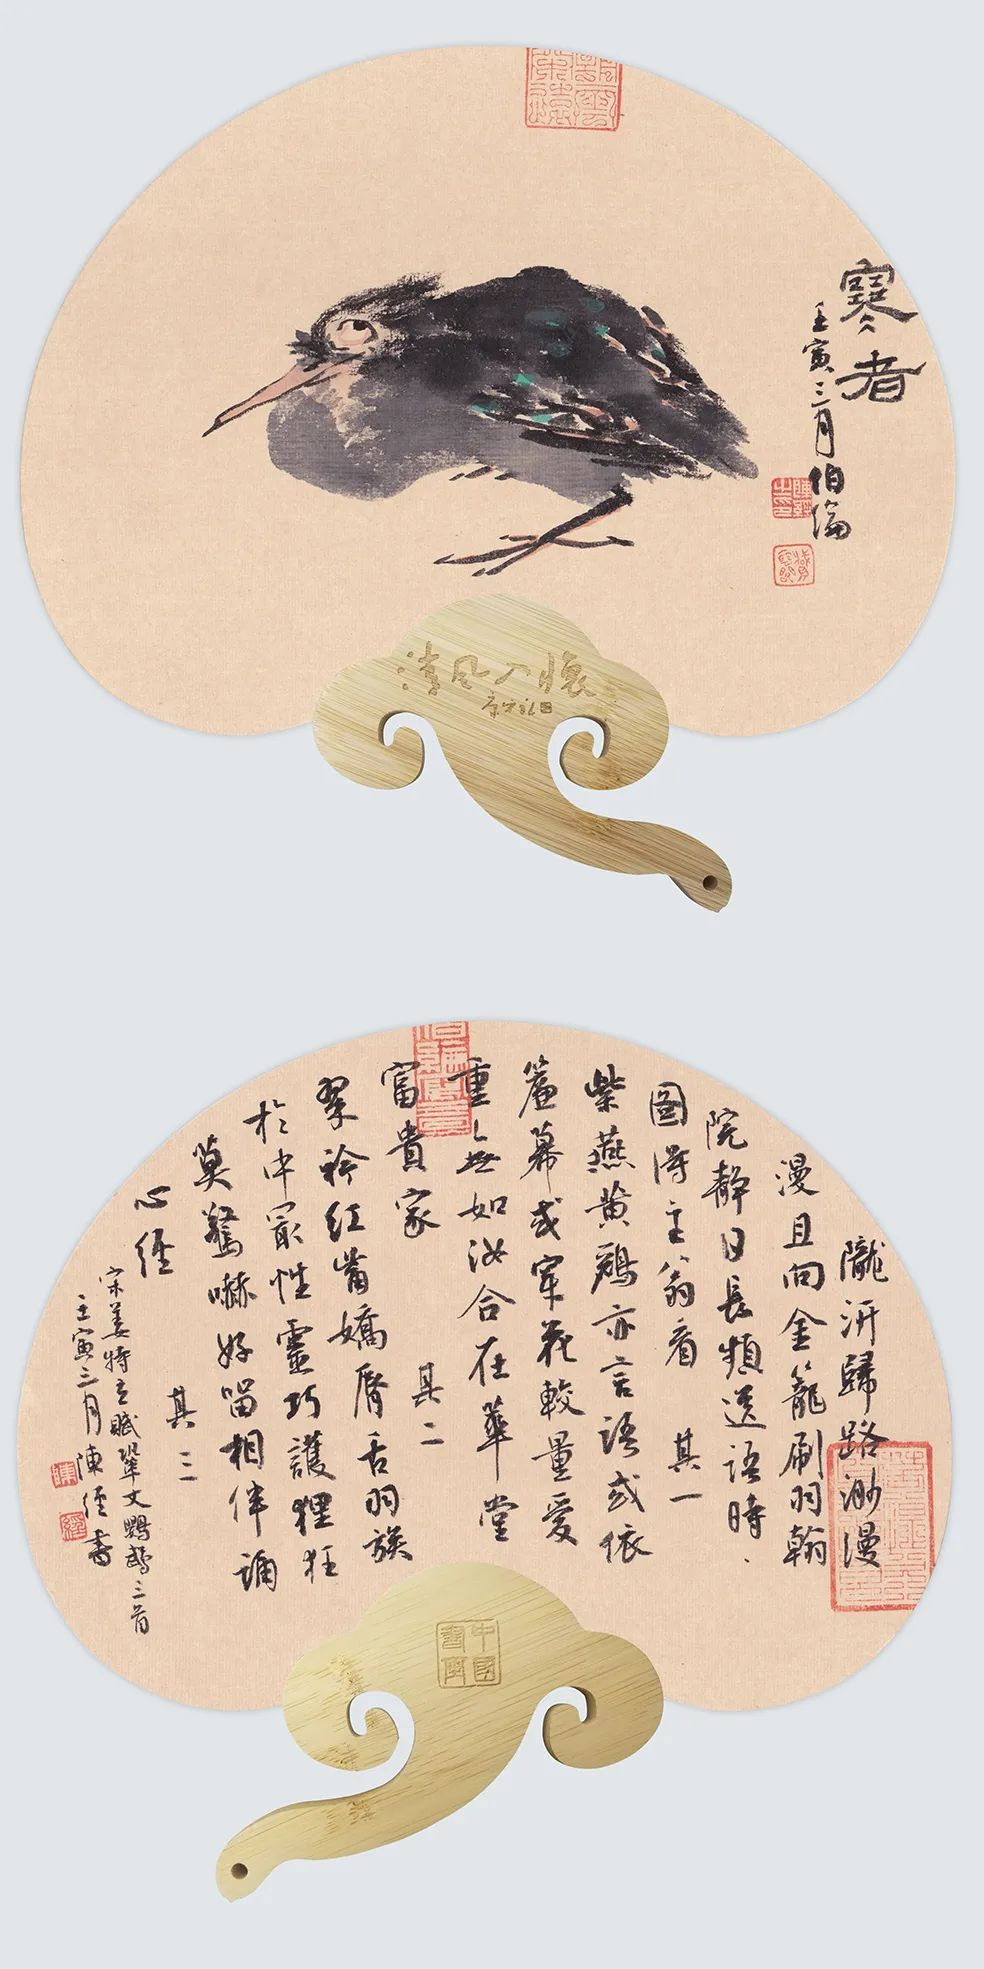 寒者
壬寅三月
伯倫
清风入懷
隴沂歸路渺漫
漫且向金籠刷羽翰
院靜日長頻送語時
圖得主翁看 其一
紫燕黄鸝亦言語或依
簾幕或穿花較量愛
重無如汝合在華堂
富貴家 其二
翠衿紅觜嬌脣舌羽族
於中最性靈巧護狸狂
莫驚嚇好留相伴誦
心經 其三
宋姜特立賦鞏文鸚鵡三首
壬寅三月陳經書
中國
書画